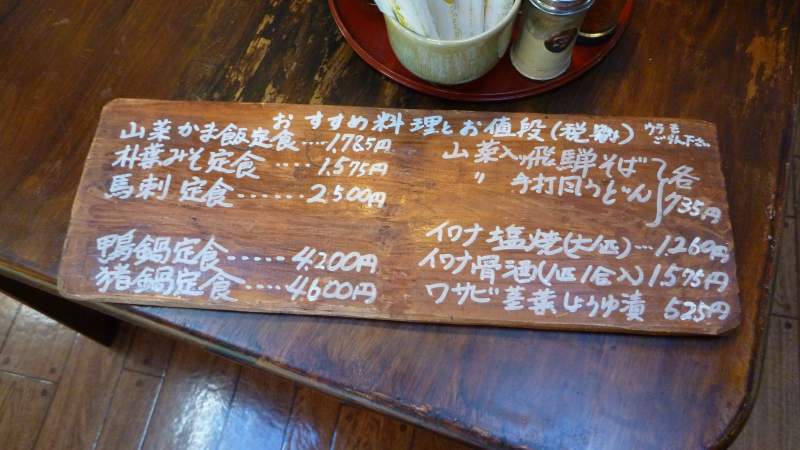 おすすめ料理とお値段(税別)
ウラも
ご覧下さい
山菜かま飯定食……1,785円
朴葉みそ定食……1,575円
馬刺定食………2,500円
鴨鍋定食……4,200円
猪鍋定食……4,600円
山菜入り飛騨そば
〃手打風うどん
各
735円
イワナ塩焼(大1匹)…1,260円
イワナ骨酒(1匹1合入)1,575円
ワサビ茎葉しょうゆ漬 525円